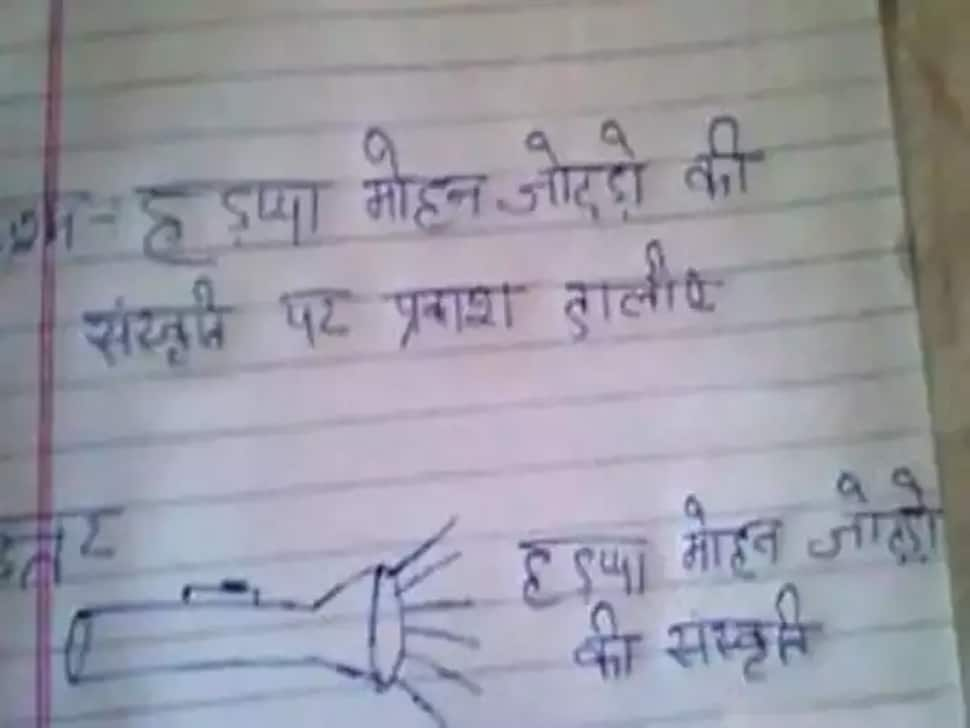 प्रश्न - हड़प्पा मोहन जोदड़ो की
संस्कृति पर प्रकाश डालीए
उत्तर
हड़प्पा मोहन जोदड़ो
की संस्कृति